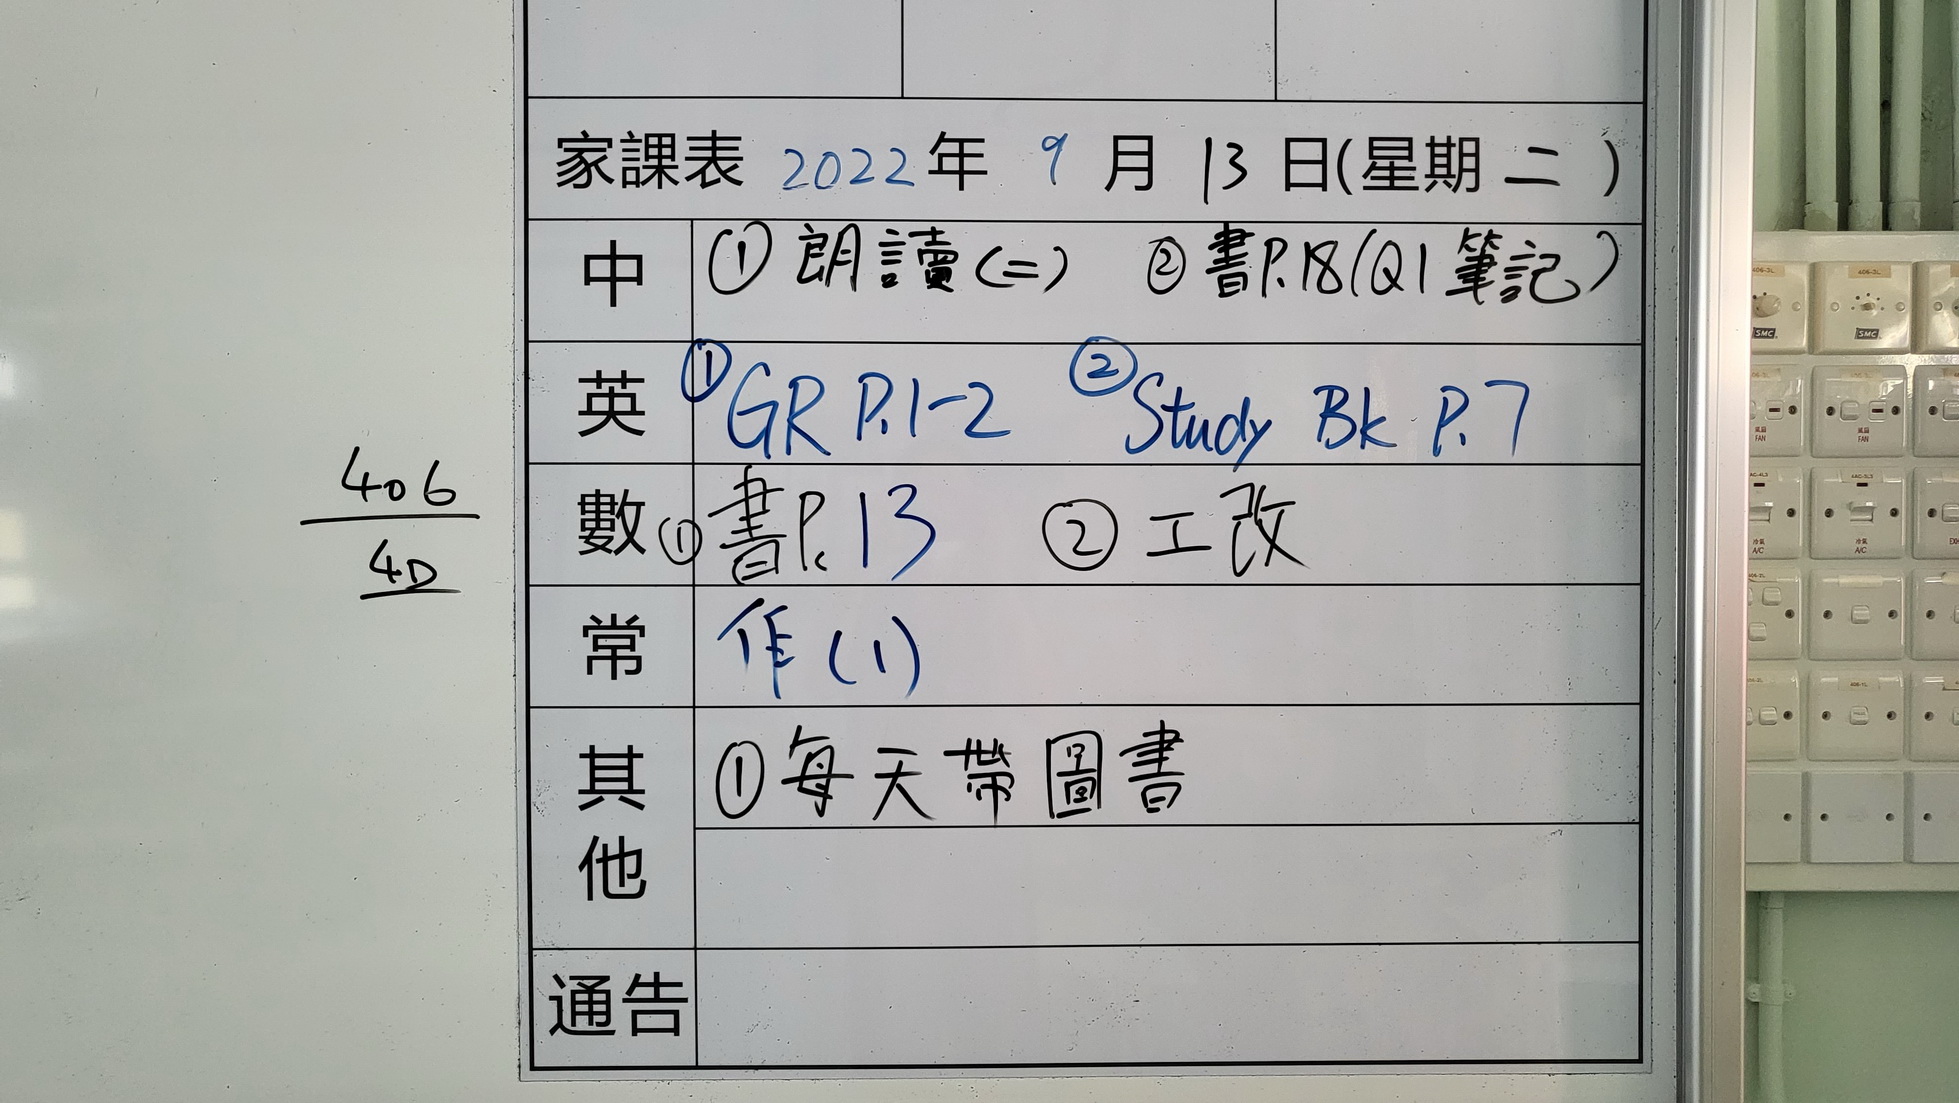 家課表 2022年 9月 13日(星期二)
中 ①朗讀(二) ②書P.18(Q1筆記)
英 ①GR P.1-2 ②Study Bk P.7
數 ①書P.13 ②工改
常 作(1)
其他 ①每天帶圖書
通告
406
4D
SMC
SMC
風扇
FAN
風扇
FAN
冷氣
A/C
冷氣
A/C